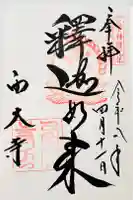 奉拝
令和八年
四月十一日
釋迦如来
西大寺